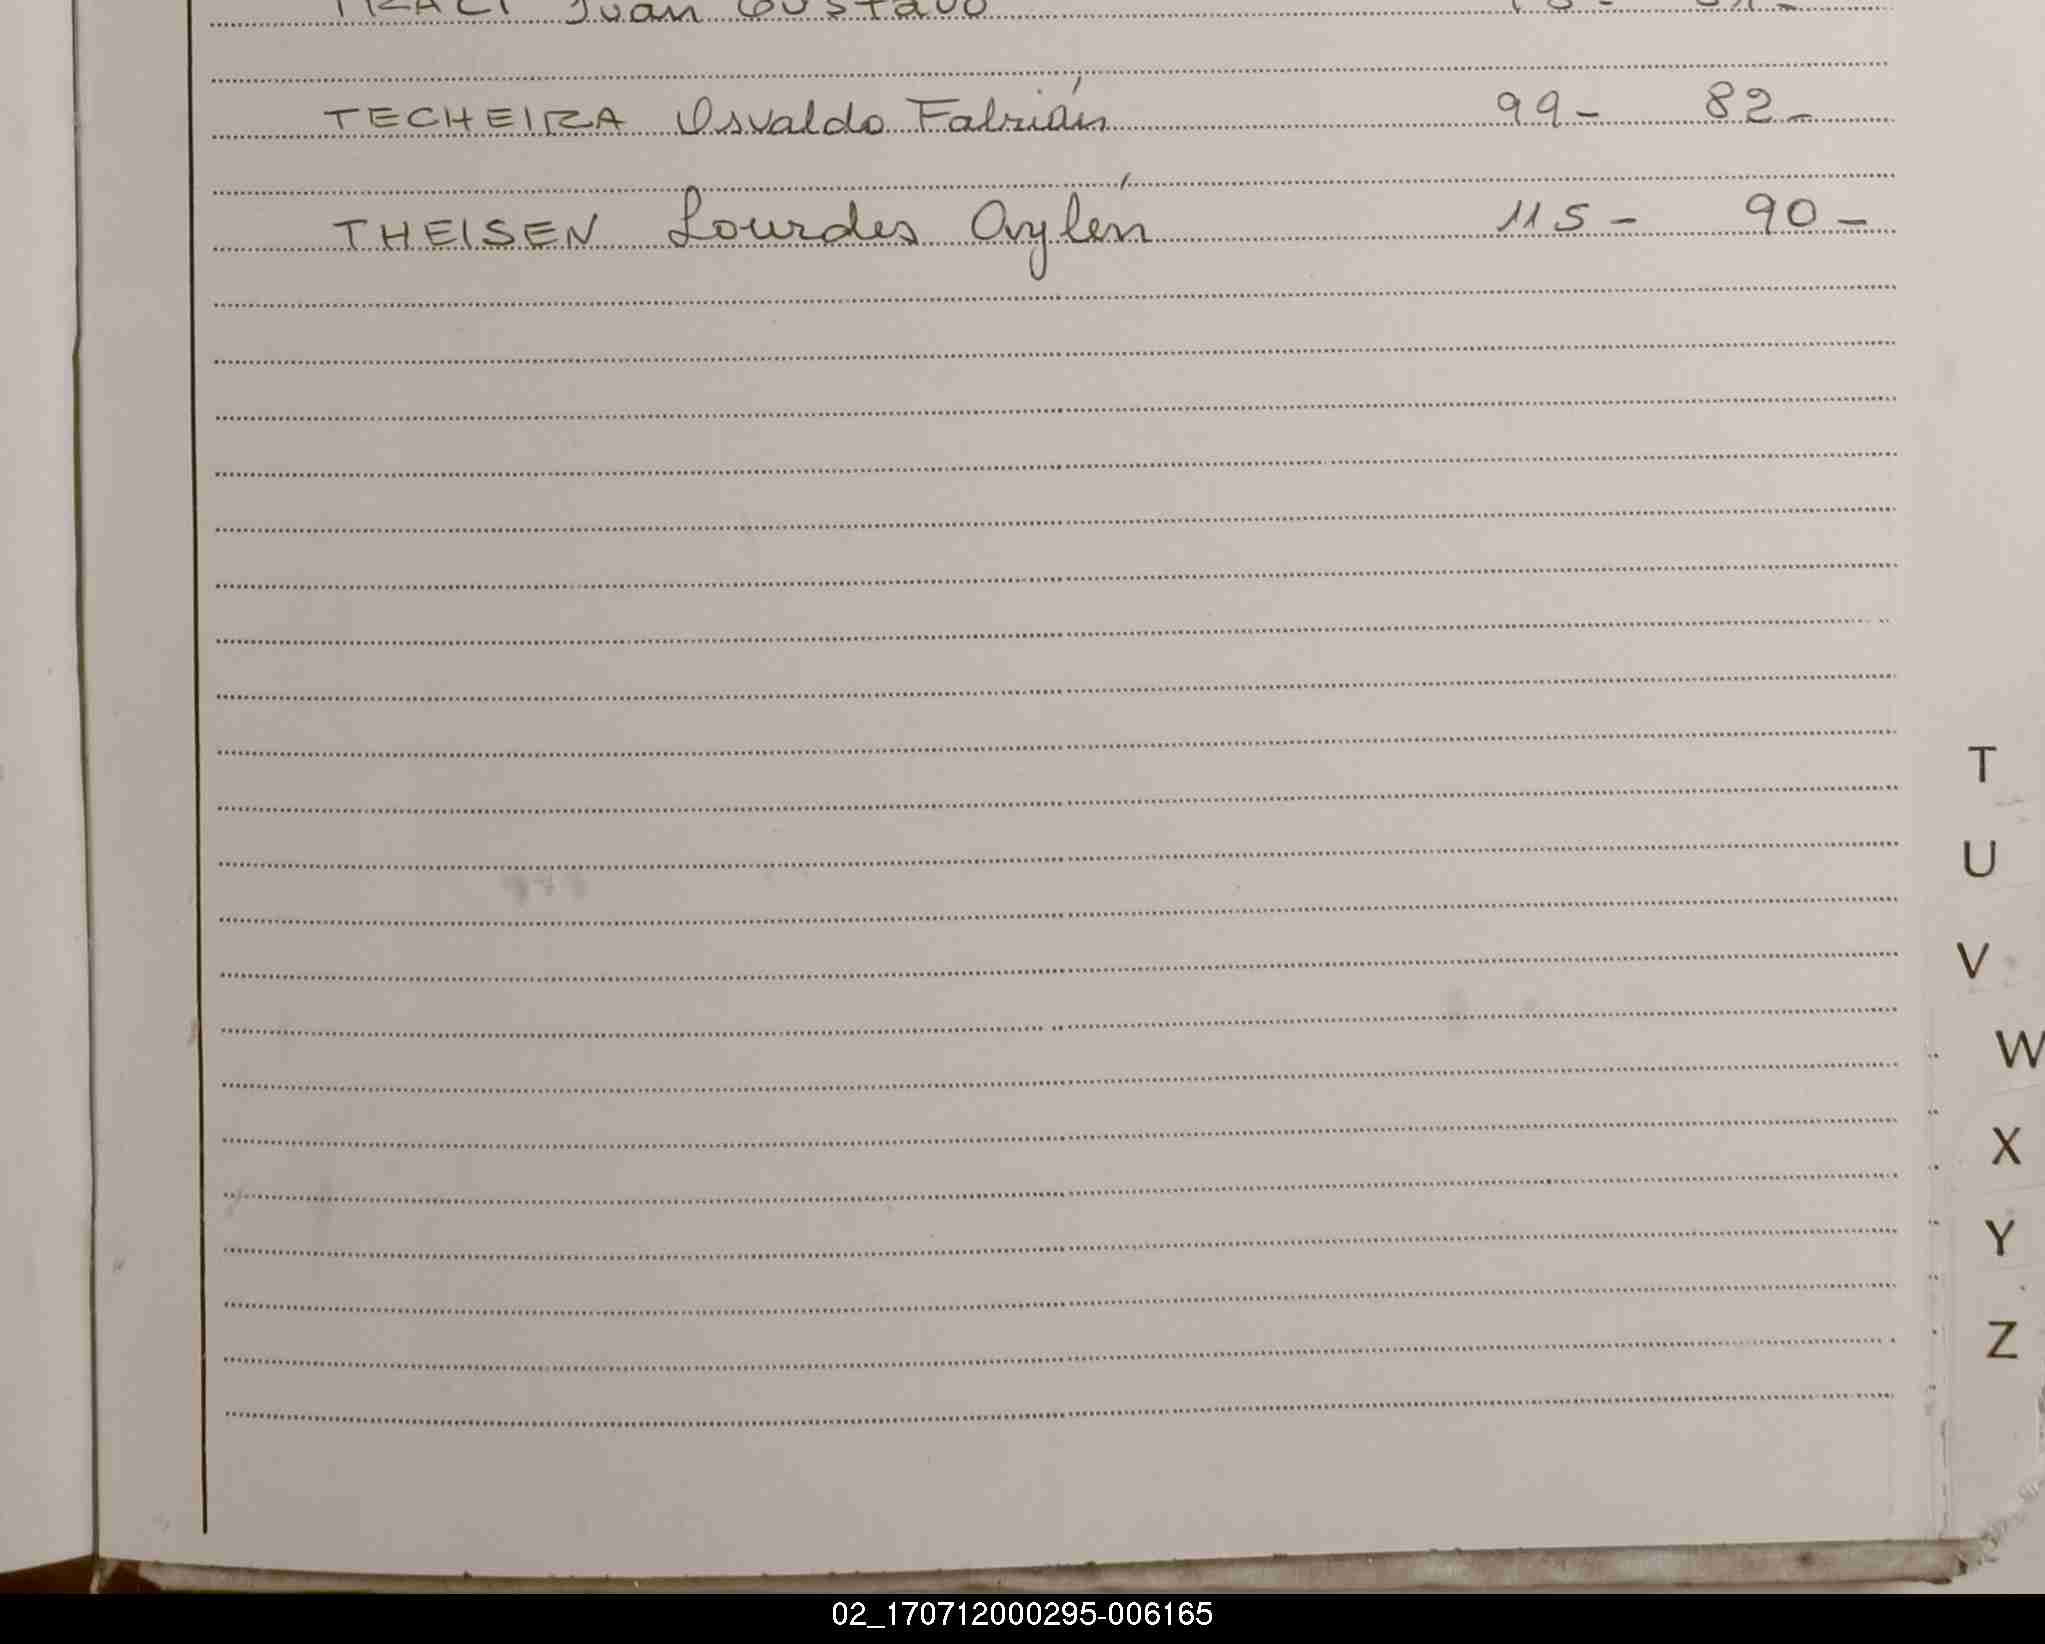 Juan Gustavo
TECHEIRA Osvaldo Fabrián 99- 82-
THEISEN Lourdes Aylén 115- 90-
T
U
V
W
X
Y
Z
02_170712000295-006165